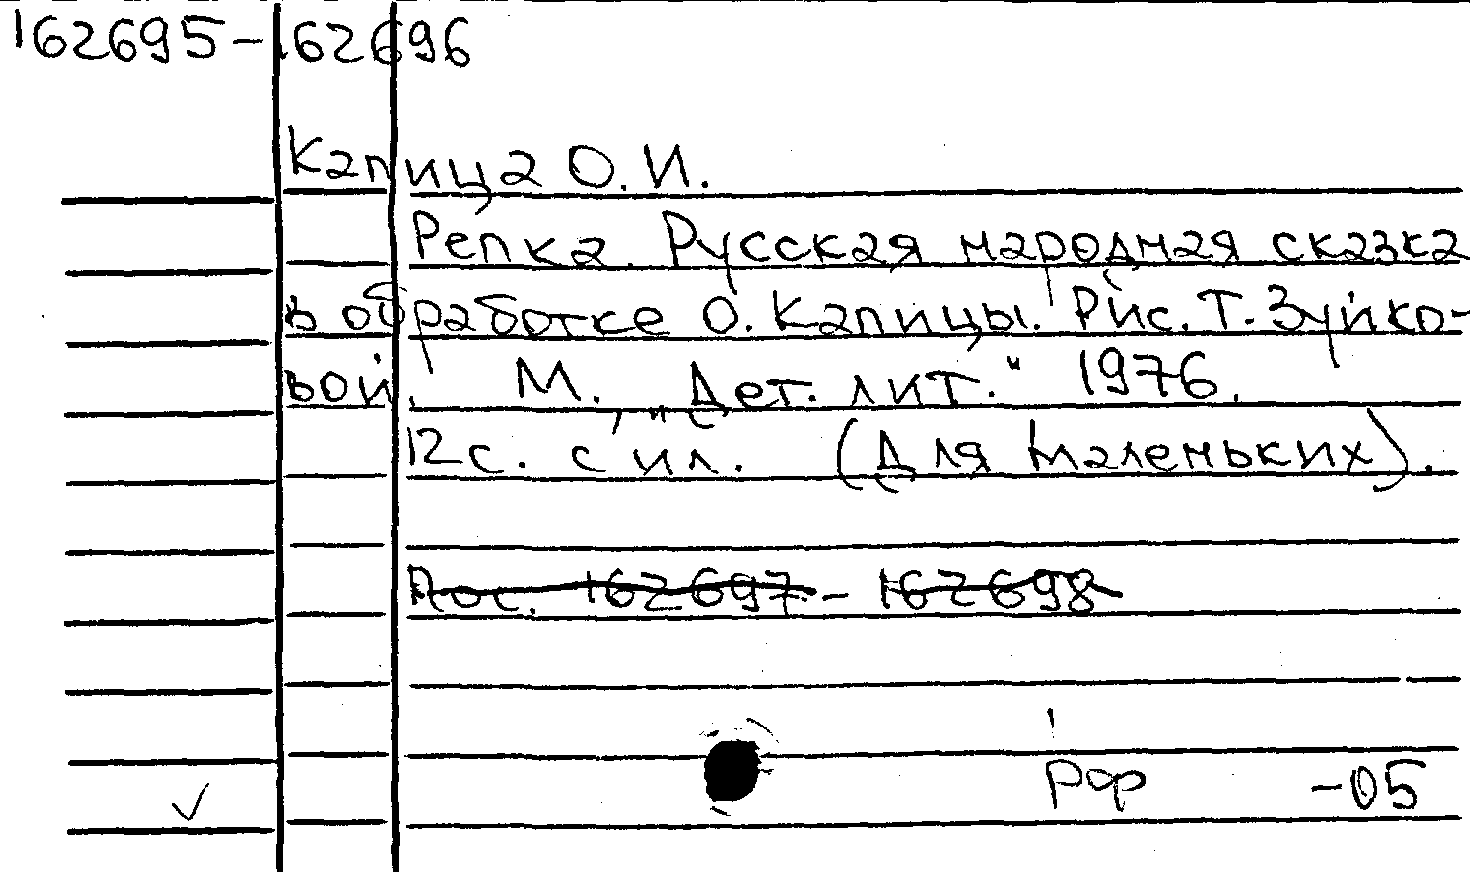 162695-162696
Капица О.И.
Репка. Русская народная сказка
в обработке О. Капицы. Рис. Т. Зуйко-
вой. М., „Дет. лит." 1976.
12с. с ил. (Для маленьких).
Пос. 162697-162698
Рор -05